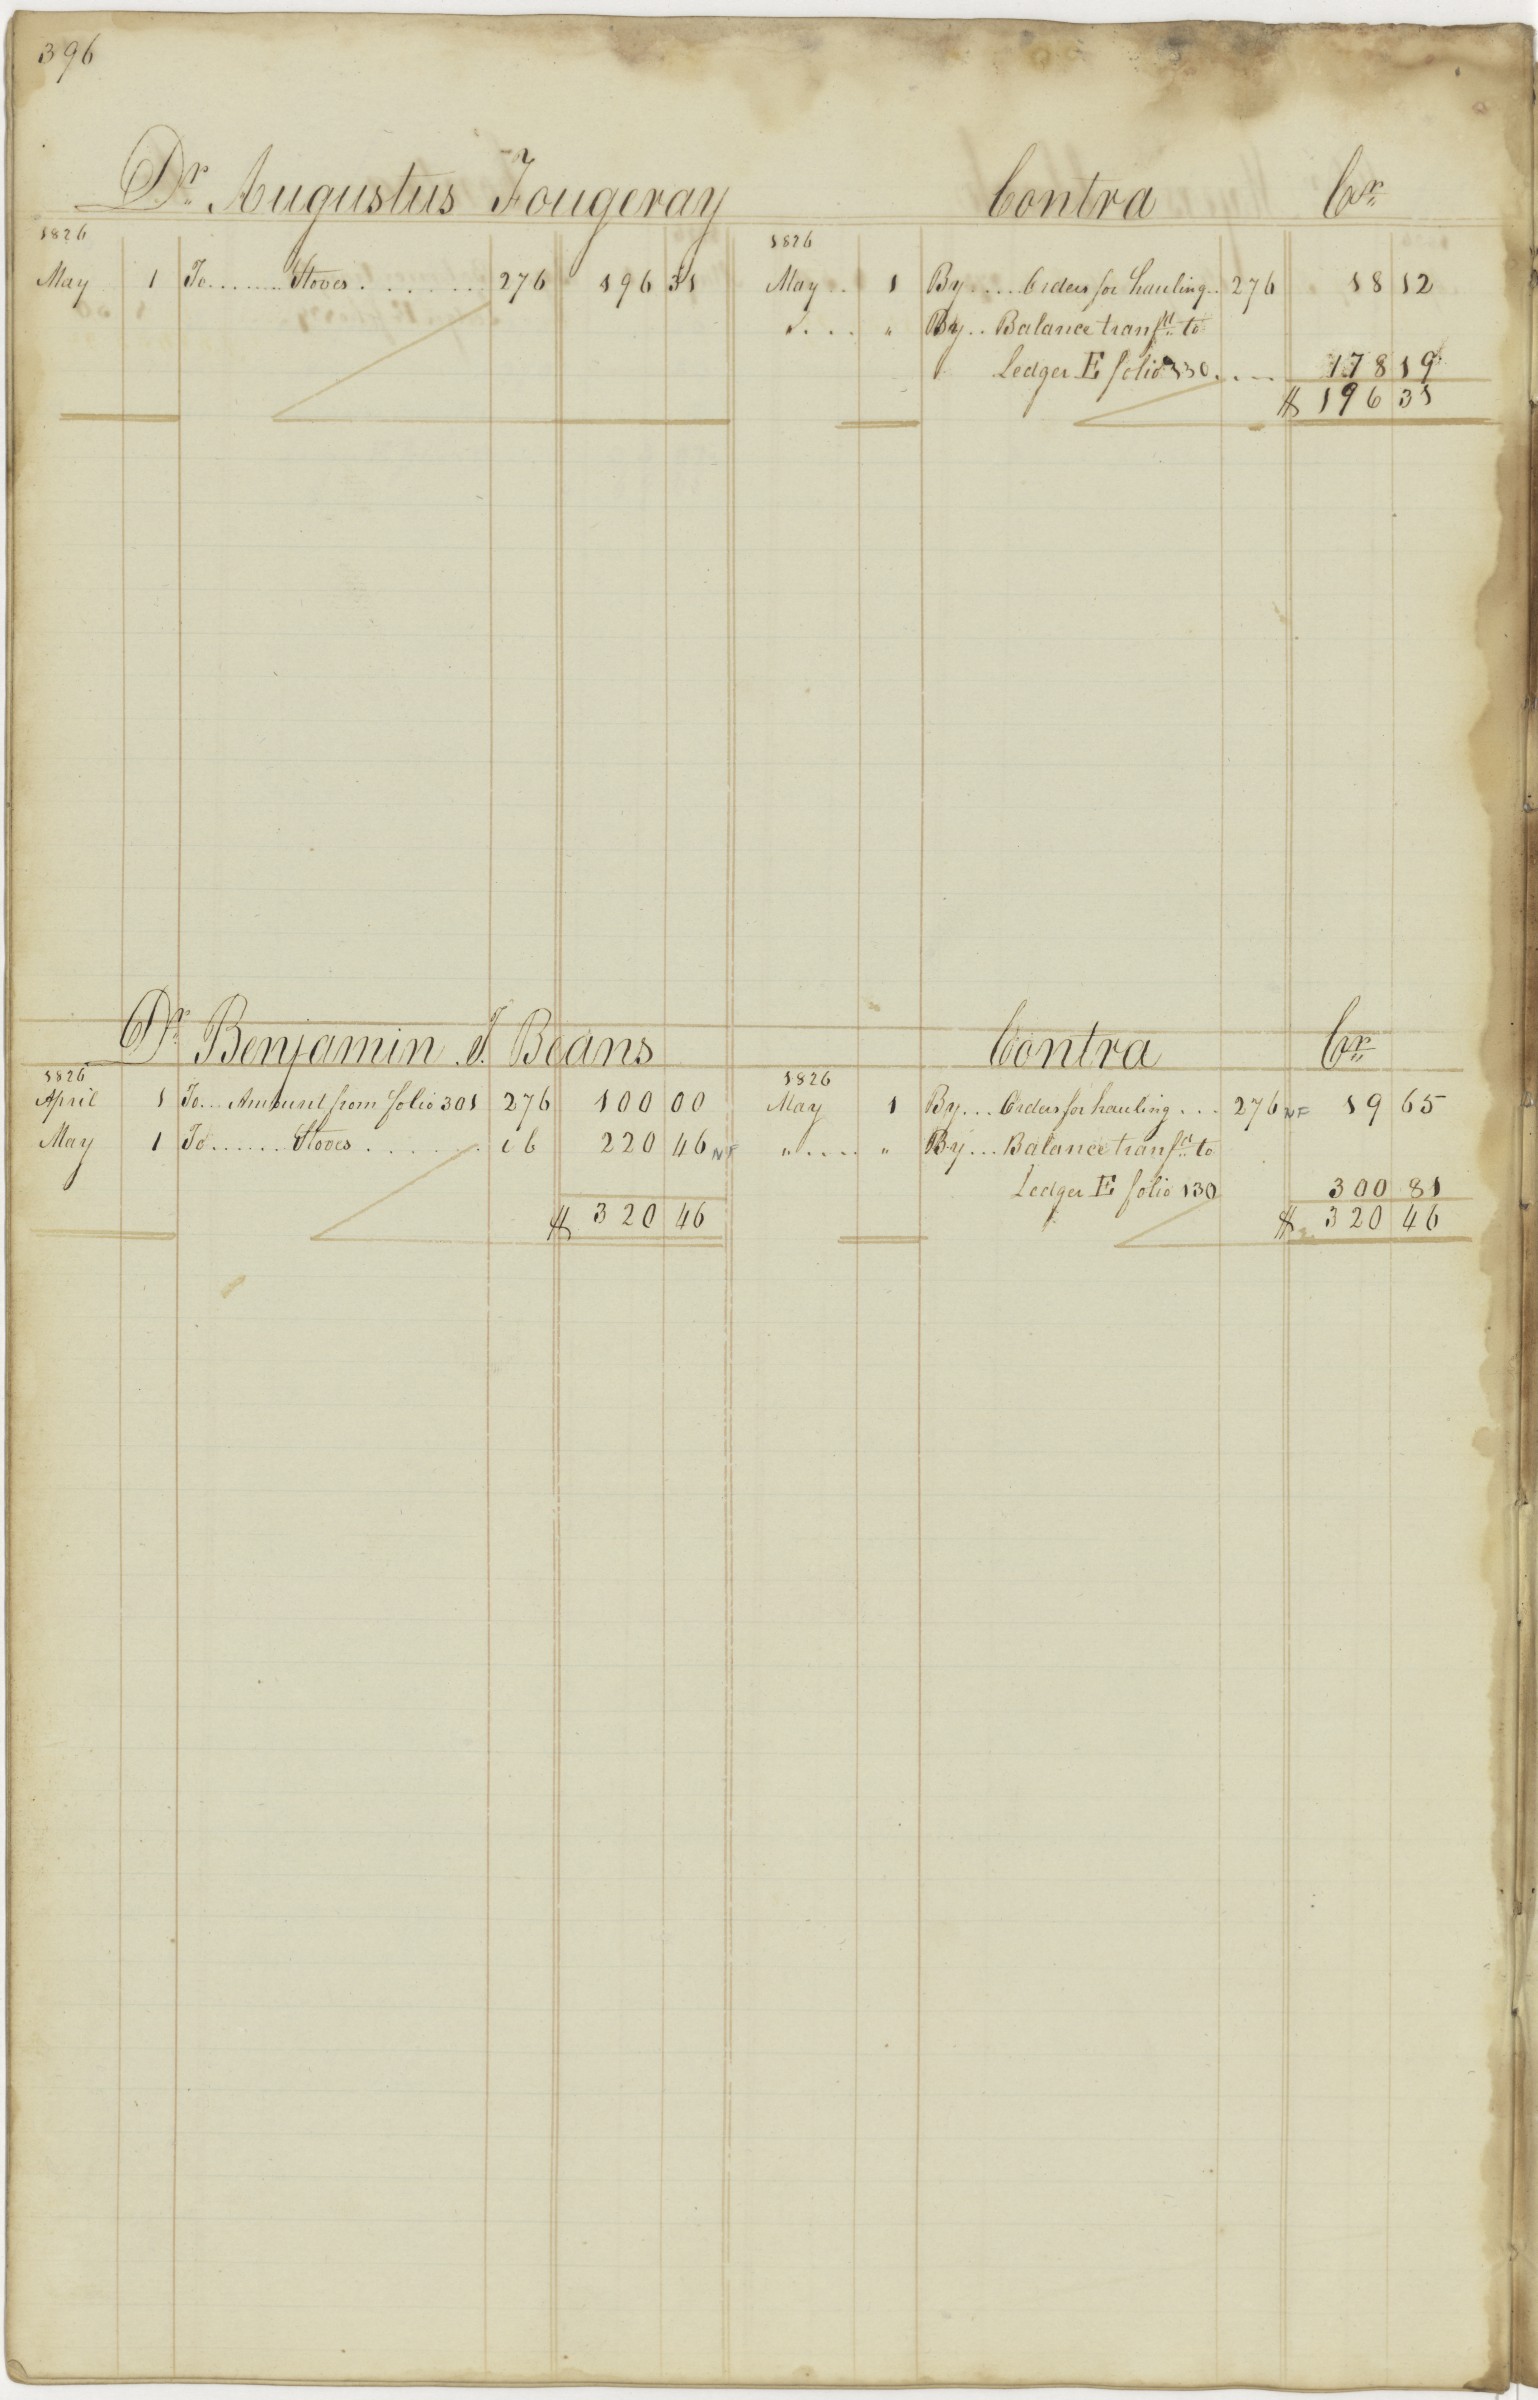 396
Dr. Augustus Fougeray Contra Cr.
1826 1826
May 1 To........Stoves....... 276 196 31 May.. 1 By.... Orders for hauling.. 276 18 12
".... " By.. Balance transfd. to
Ledger E folio 130.... 178 19
$ 196 31
Dr. Benjamin J. Beans Contra Cr.
1826 1826
April 1 To... Amount from folio 301 276 100 00 May 1 By... Orders for hauling... 276 NF 19 65
May 1 To......Stoves....... ib 220 46 NF ".... " By... Balance transfd. to
Ledger E folio 130 300 81
$ 320 46 $ 320 46